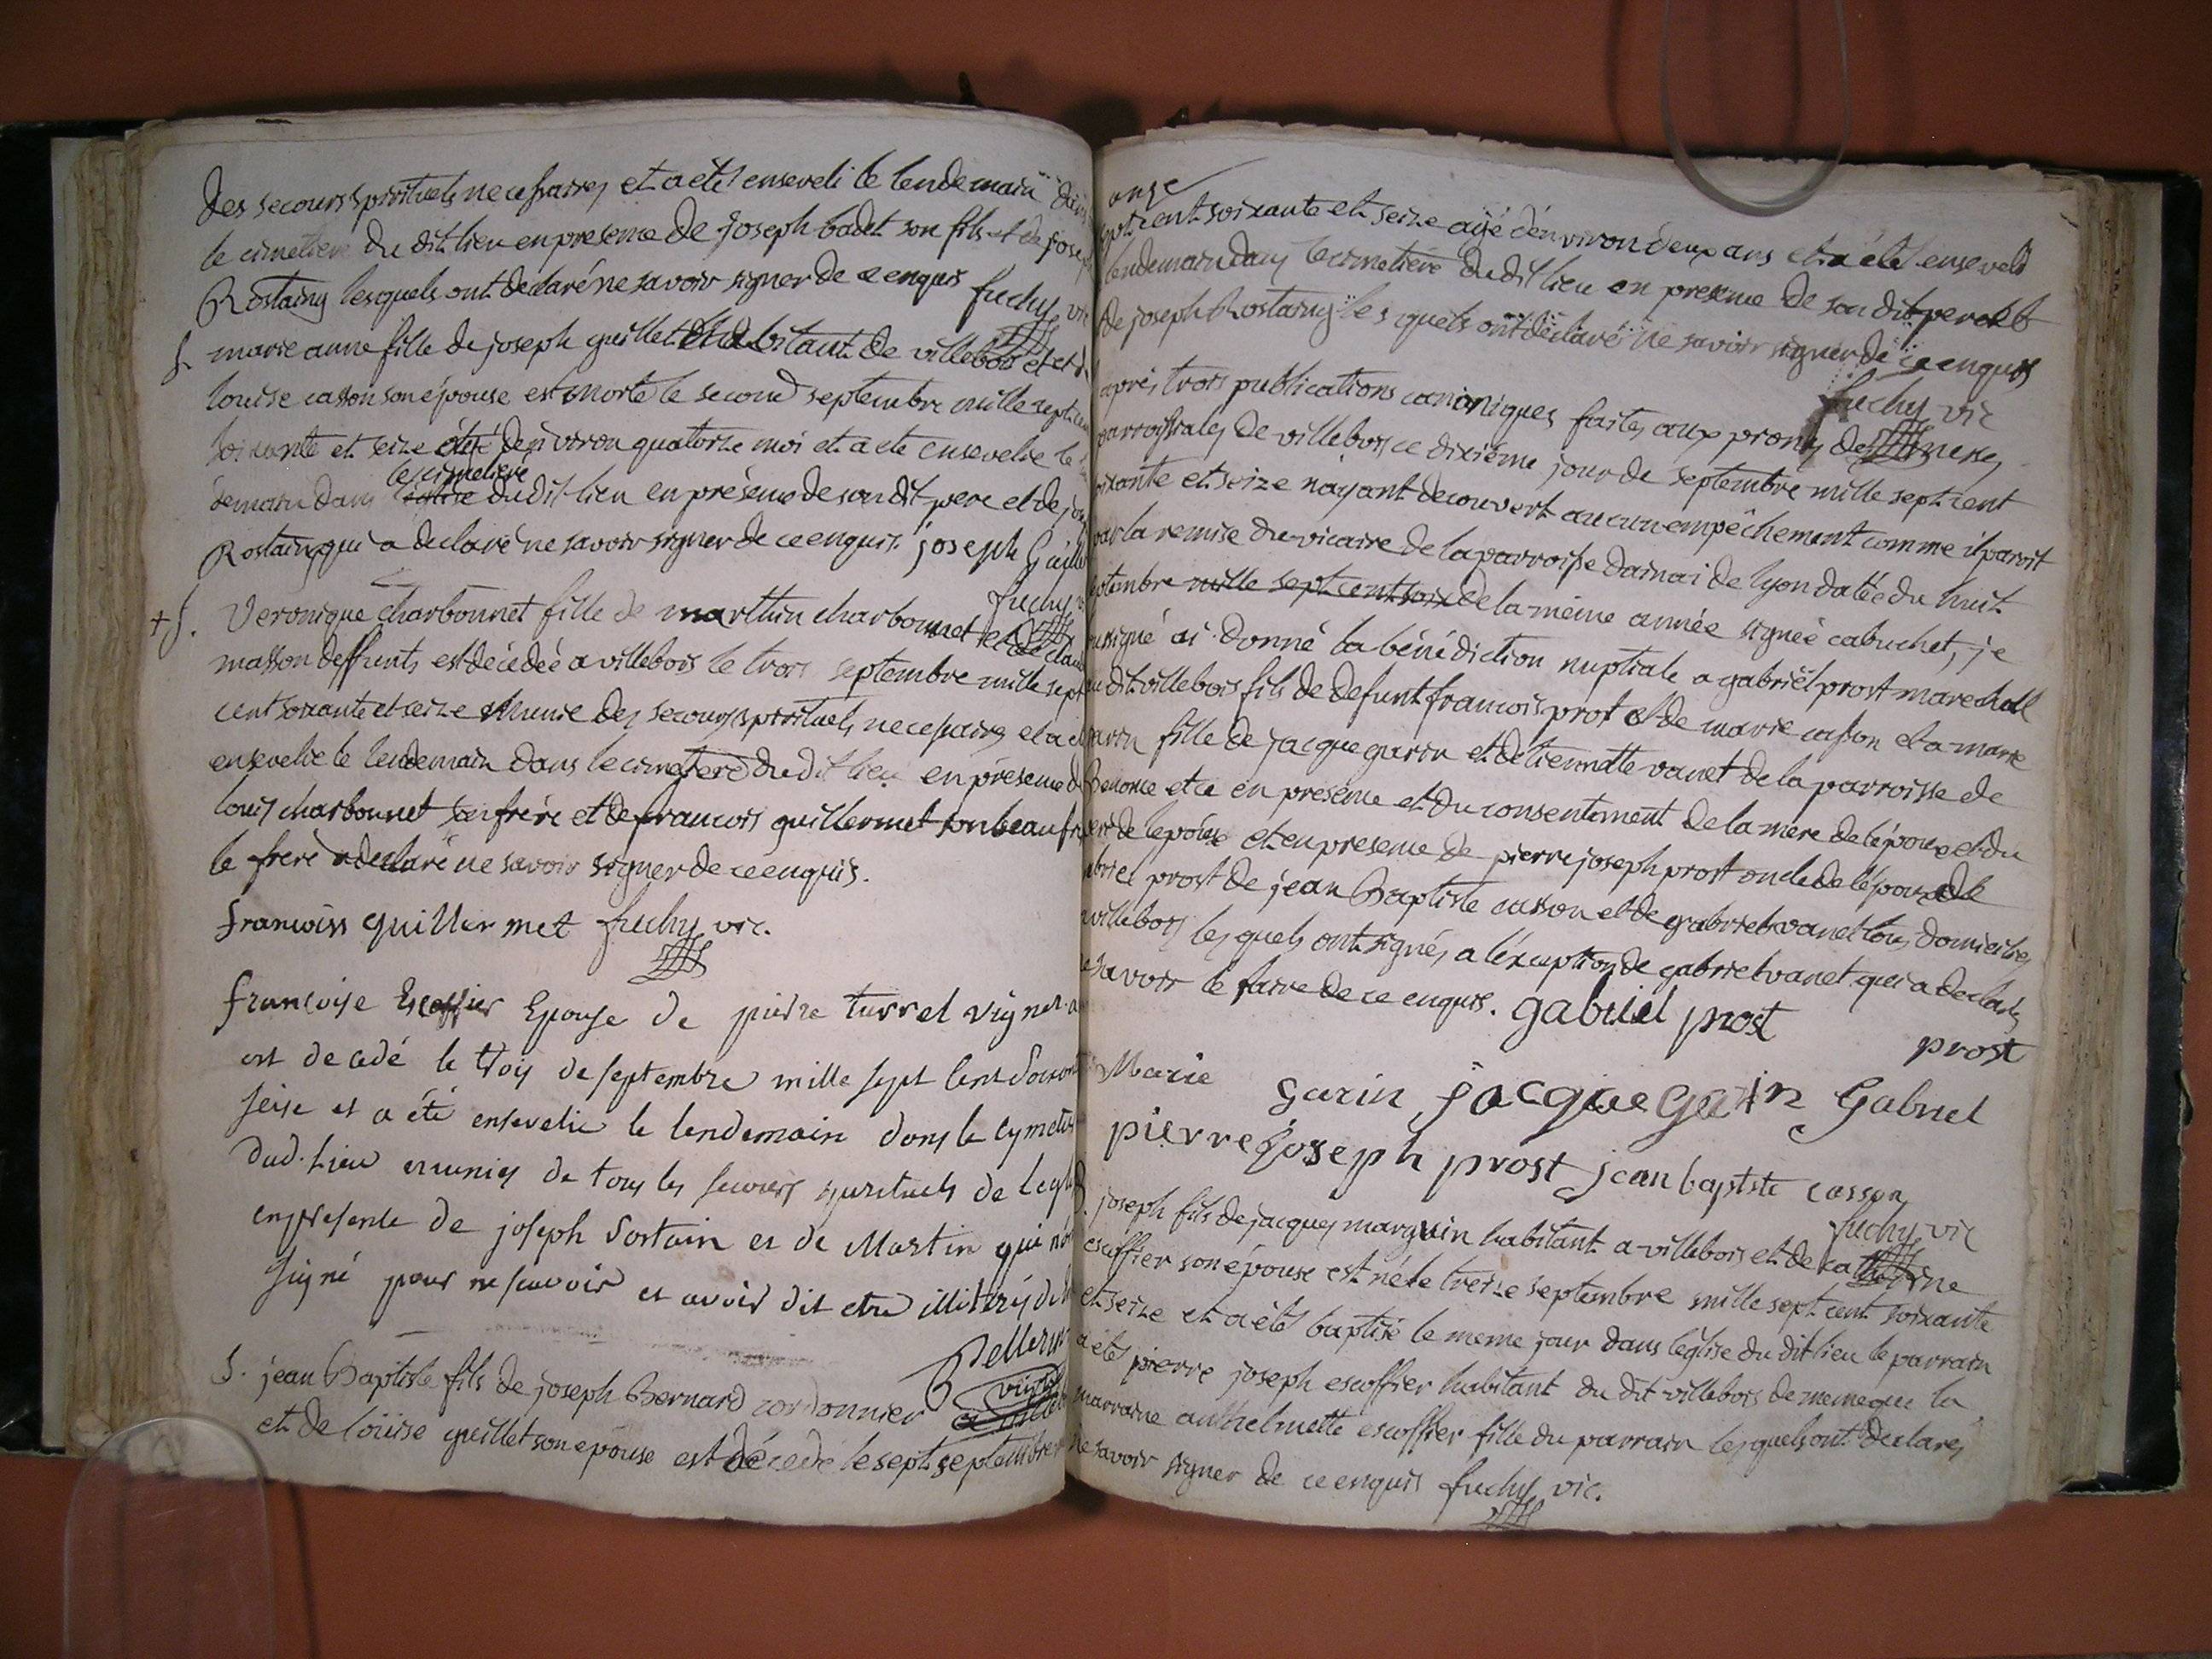 des secours spirituels necessaires et a etes enseveli le lendemain dans
le cimetiere du dit lieu en presence de joseph badet son fils et de josep
Rostaing lesquels ont declaré ne savoir signer de ce enquis fuchy vic
S. marie anne fille de joseph guillet habitant de villebois et et d
louise casson son épouse est morte le second septembre mille sept cent
soixante et seize de n'viron quatorze moi et a ete ensevelie le
demain dans le cimetiere du dit lieu en présence de son dit pere et de jos
Rostaing qui a declaré ne savoir signer de ce enquis. joseph Guillet
fuchy v
+ S. Veronique charbonnet fille de marthin charbonnet et de clau
masson deffunts est décédée a villebois le trois septembre mille sept
cent soixante et seize Munie des secours spirituels necessaires et a et
ensevelie le lendemain dans le cimetiere du dit lieu en présence de
louis charbonnet son frere et de francois guillermet son beau fr
le frere a declaré ne savoir signer de ce enquis.
francoiss guillermet fuchy vic.
francoise Escoffier Epouse de pierre turrel vigner
est decedé le trois de septembre mille sept cent soixante
seise et a été ensevelie le lendemain dans le cymetie
dud. lieu munies de tous les secours spirituels de legli
en presence de joseph Sortain et de Martin qui n'on
signé pour ne sçavoir et avoir dit etre illitérés de
Pellerin
vic
S. jean Baptiste fils de joseph Bernard cordonnier
et de loüise guillet son epouse est décédé le sept septembre
onze
sept cent soixante et seize agé d'enviroin deux ans et a été enseveli
lendemain dans le cimetiere du dit lieu en presence de son dit pere et
de joseph Rostaing lesquels ont déclarés ne savoir signer de ce enquis
fuchy vic
après trois publications canoniques faites aux prones des messes
parroissiales de villebois ce dixiéme jour de septembre mille sept cent
soixante et seize n'ayant decouvert aucun empêchement comme il paroit
par la remise du vicaire de la parroisse dainai de lyon datée du huit
septembre mille sept cent soix de la même année signée cabuchet, je
soussigné ai donné la bénédiction nuptiale a gabriël prost marechal
du dit villebois fils de defunt francois prost et de marie casson et a marie
garin fille de jacque garin et détiennette vanet de la parroisse de
Benonce et ce en presence et du consentement de la mere de lépoux et du
pere de lepouse et en presence de pierre joseph prost oncle de lépoux de
gabriel prost de jean Baptiste casson et de gabriel vanet tous domiciliés
villebois lesquels ont signés a l'éxception de gabriel vanet qui a declarés
ne savoir le faire de ce enquis. gabriel prost
prost
Marie garin jacque garin Gabriel
pierre joseph prost jean baptiste casson
fuchy vic
S. joseph fils de jacques marguin habitant a villebois et de catherine
escoffier son épouse est né le treize septembre mille sept cent soixante
et seize et a étés baptisé le meme jour dans léglise du dit lieu le parrain
a étes pierre joseph escoffier habitant du dit villebois de meme que la
marraine anthelmette escoffier fille du parrain lesquels ont declares
ne savoir signer de ce enquis fuchy vic.